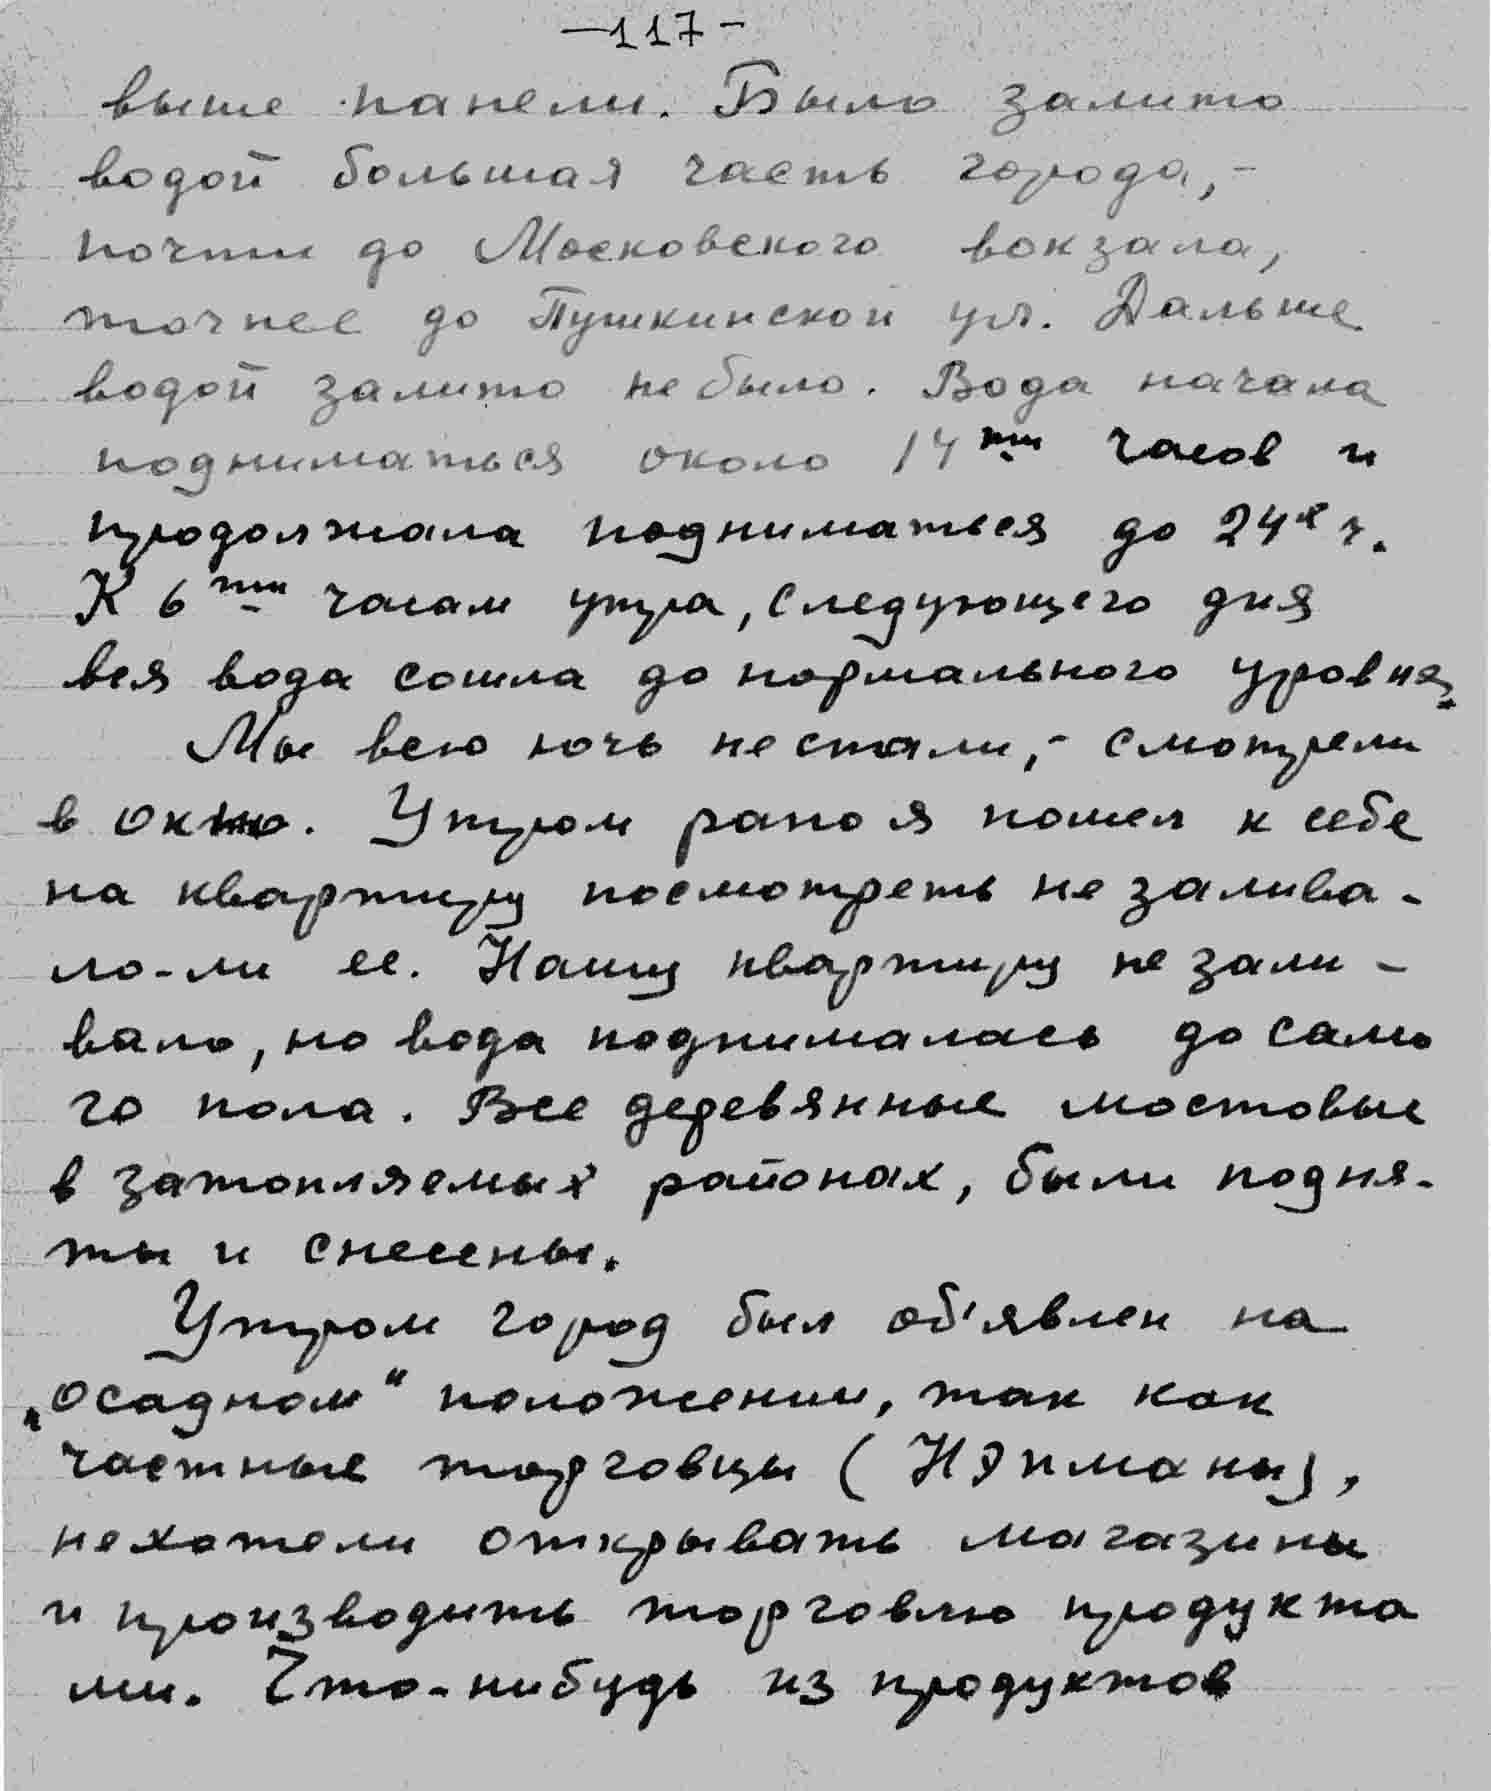 —117-
выше панели. Было залито
водой большая часть города,-
почти до Московского вокзала,
точнее до Пушкинской ул. Дальше
водой залито не было. Вода начала
подниматься около 14ти часов и
продолжала подниматься до 24х ч.
К 6ти часам утра, следующего дня
вся вода сошла до нормального уровня.
Мы всю ночь не спали,- смотрели
в окно. Утром рано я пошел к себе
на квартиру посмотреть не залива-
ло-ли ее. Нашу квартиру не зали-
вало, но вода поднималась до само
го пола. Все деревянные мостовые
в затопляемых районах, были подня-
ты и снесены.
Утром город был об'явлен на
„осадном" положении, так как
частные торговцы (Нэпманы),
не хотели открывать магазины
и производить торговлю продукта
ми. Что-нибудь из продуктов